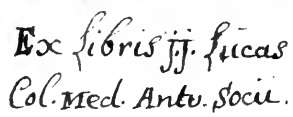 Ex Libris j.j. Lucas
Col. Med. Antv. Socii.